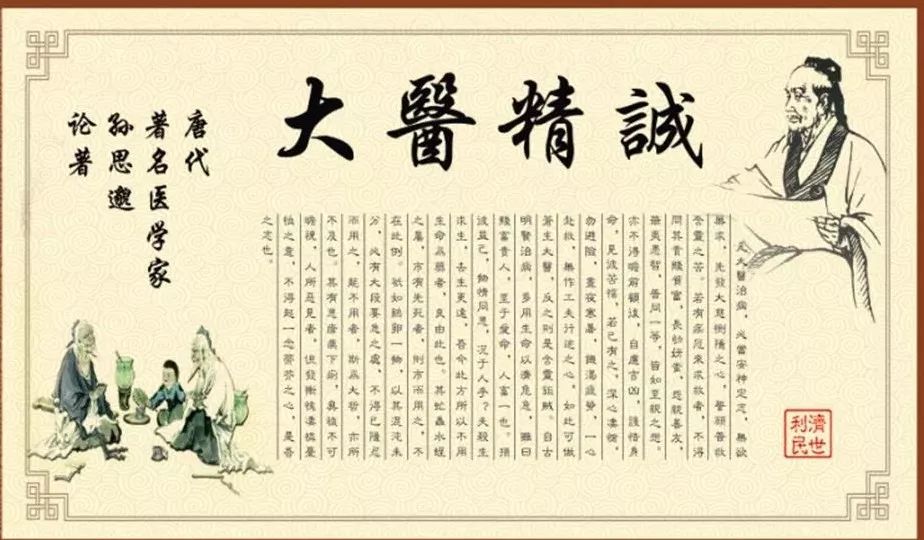 大醫精誠
唐代
著名医学家
孙思邈
论著
凡大醫治病，必當安神定志，無欲
無求，先發大慈惻隱之心，誓願普救
含靈之苦。若有疾厄來求救者，不得
問其貴賤貧富，長幼妍蚩，怨親善友，
華夷愚智，普同一等，皆如至親之想。
亦不得瞻前顧後，自慮吉凶，護惜身
命，見彼苦惱，若己有之，深心凄愴，
勿避險，晝夜寒暑，饑渴疲勞，一心
赴救，無作工夫行迹之心。如此可做
蒼生大醫，反之則是含靈鉅賊。自古
明賢治病，多用生命以濟危急，雖曰
賤畜貴人，至于愛命，人畜一也。損
彼益己，物情同患，況于人乎？夫殺生
求生，去生更遠，吾今此方所以不用
生命為藥者，良由此也。其虻蟲水蛭
之屬，市有先死者，則市而用之，不
在此例。衹如鷄卵一物，以其混沌未
分，必有大段要急之處，不得已隱忍
而用之，能不用者，斯為大哲，亦所
不及也。其有患瘡痍下痢，臭穢不可
瞻視，人所惡見者，但發慚愧凄憐憂
恤之意，不得起一念蒂芥之心，是吾
之志也。
濟世
利民